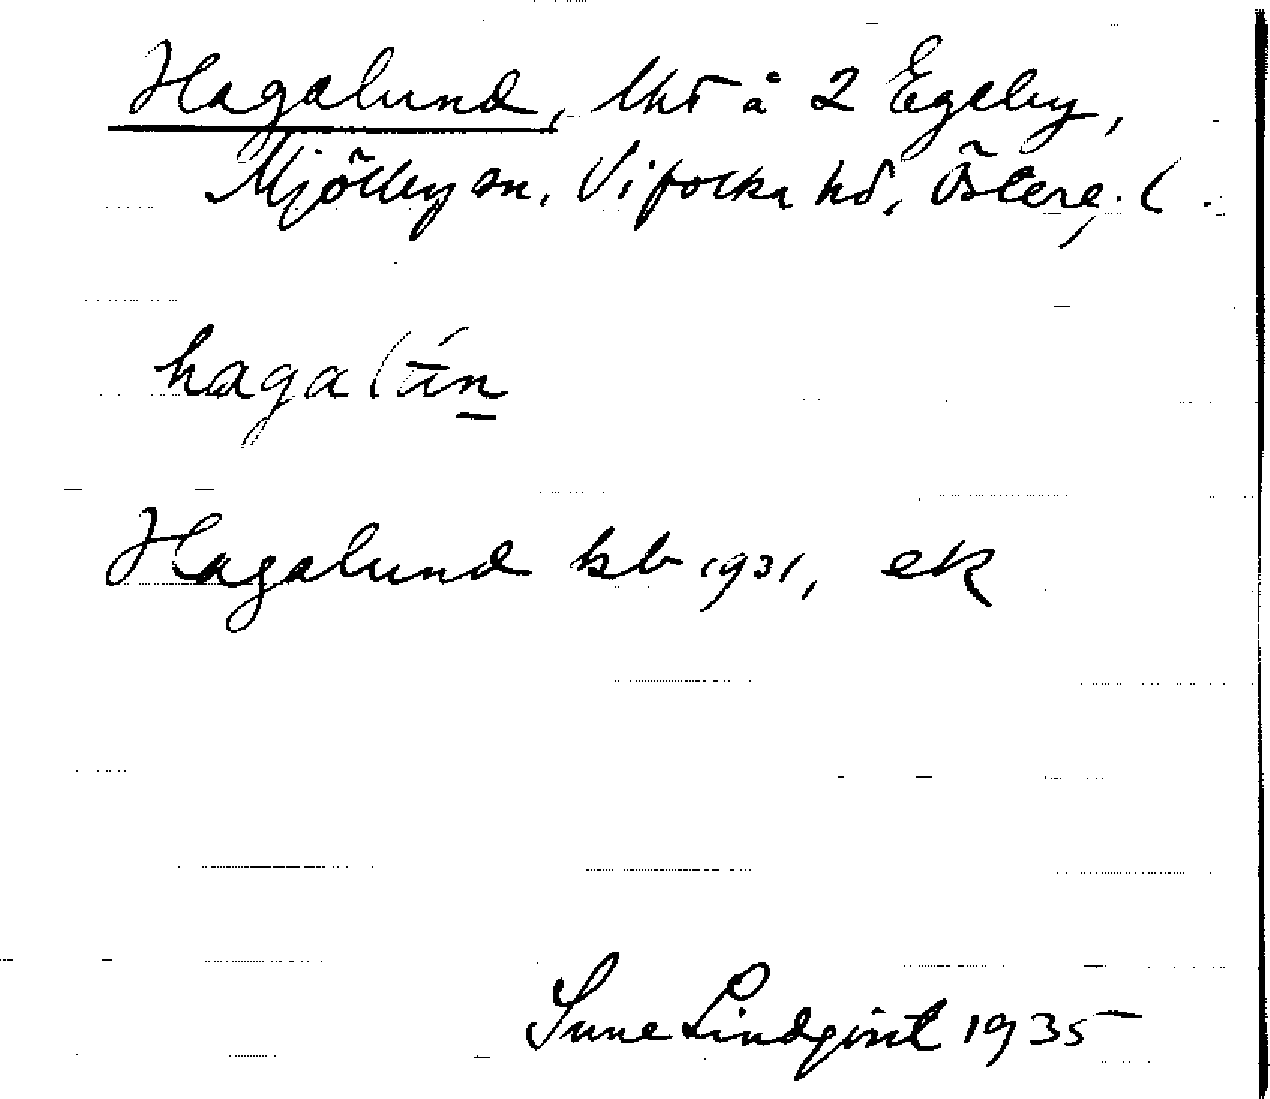 Hagalund, lht å 2 Egeby,
Mjölby sn, Vifolka hd, Österg. l.
hagalún
Hagalund kb 1931, ek
Sune Lindqvist 1935